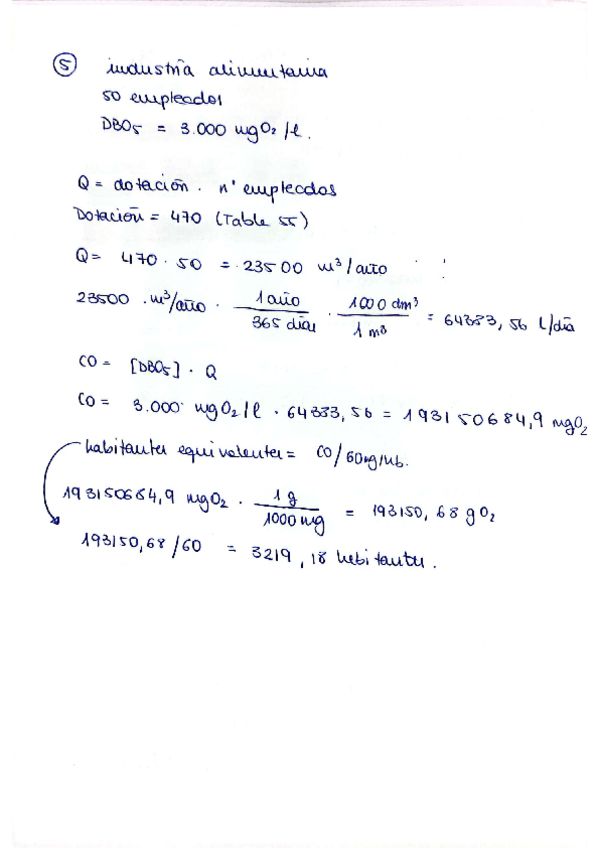 5 industria alimentaria
50 empleados
DBO5 = 3.000 mgO2/l.
Q = dotación · nº empleados
Dotación = 470 (Tabla 55)
Q = 470 · 50 = 23500 m³/año
23500 · m³/año · 1 año / 365 días · 1000 dm³ / 1 m³ = 64383,56 l/día
CO = [DBO5] · Q
CO = 3.000 mgO2/l · 64383,56 = 193150684,9 mgO2
habitantes equivalentes = CO/60mg/hab.
193150684,9 mgO2 · 1 g / 1000 mg = 193150,68 g O2
193150,68/60 = 3219,18 habitantes.